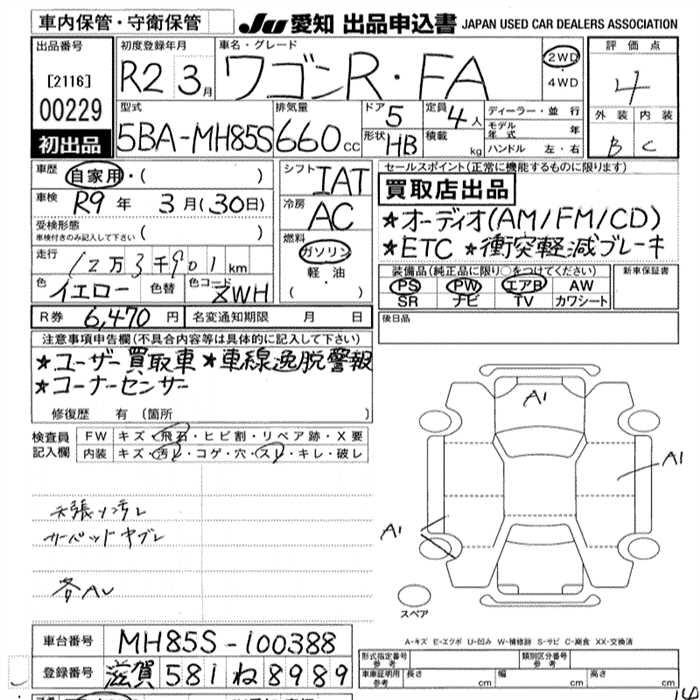 車内保管・守衛保管
JU 愛知 出品申込書 JAPAN USED CAR DEALERS ASSOCIATION
出品番号
[2116]
00229
初出品
初度登録年月
R2 3月
車名・グレード
ワゴンR・FA
2WD
4WD
評価点
4
外装 内装
B C
型式
5BA-MH85S
排気量
660cc
ドア 5
形状 HB
定員 4人
積載 kg
ディーラー・並行
モデル年式 年
ハンドル 左・右
車歴
自家用・( )
車検
R9年 3月(30日)
受検形態
車検付きのみ記入して下さい ( )
走行
12万3千901km
色 イエロー 色替 色コード ZWH
シフト IAT
冷房 AC
燃料
ガソリン
軽油
( ・ )
セールスポイント(正常に機能するものに限ります)
買取店出品
★オーディオ(AM/FM/CD)
★ETC ★衝突軽減ブレーキ
装備品(純正品に限り○をつけてください)
PS PW エアB AW
SR ナビ TV カワシート
新車保証書
後日品
R券 6,470円 名変通知期限 月 日
注意事項申告欄(不具合内容等は具体的に記入して下さい)
★ユーザー買取車 ★車線逸脱警報
★コーナーセンサー
修復歴 有(箇所 )
検査員記入欄
FW キズ・飛石・ヒビ割・リペア跡・X要
内装 キズ・汚レ・コゲ・穴・スレ・キレ・破レ
天張り汚レ
カーペットヤブレ
各AU
A1
A1
A1
スペア
A-キズ E-エクボ U-凹み W-補修跡 S-サビ C-腐食 XX-交換済
車台番号 MH85S-100388
登録番号 滋賀 581 ね 8989
型式指定番号 参考
類別区分番号 参考
車庫証明用 参考 長さ cm 幅 cm 高さ cm